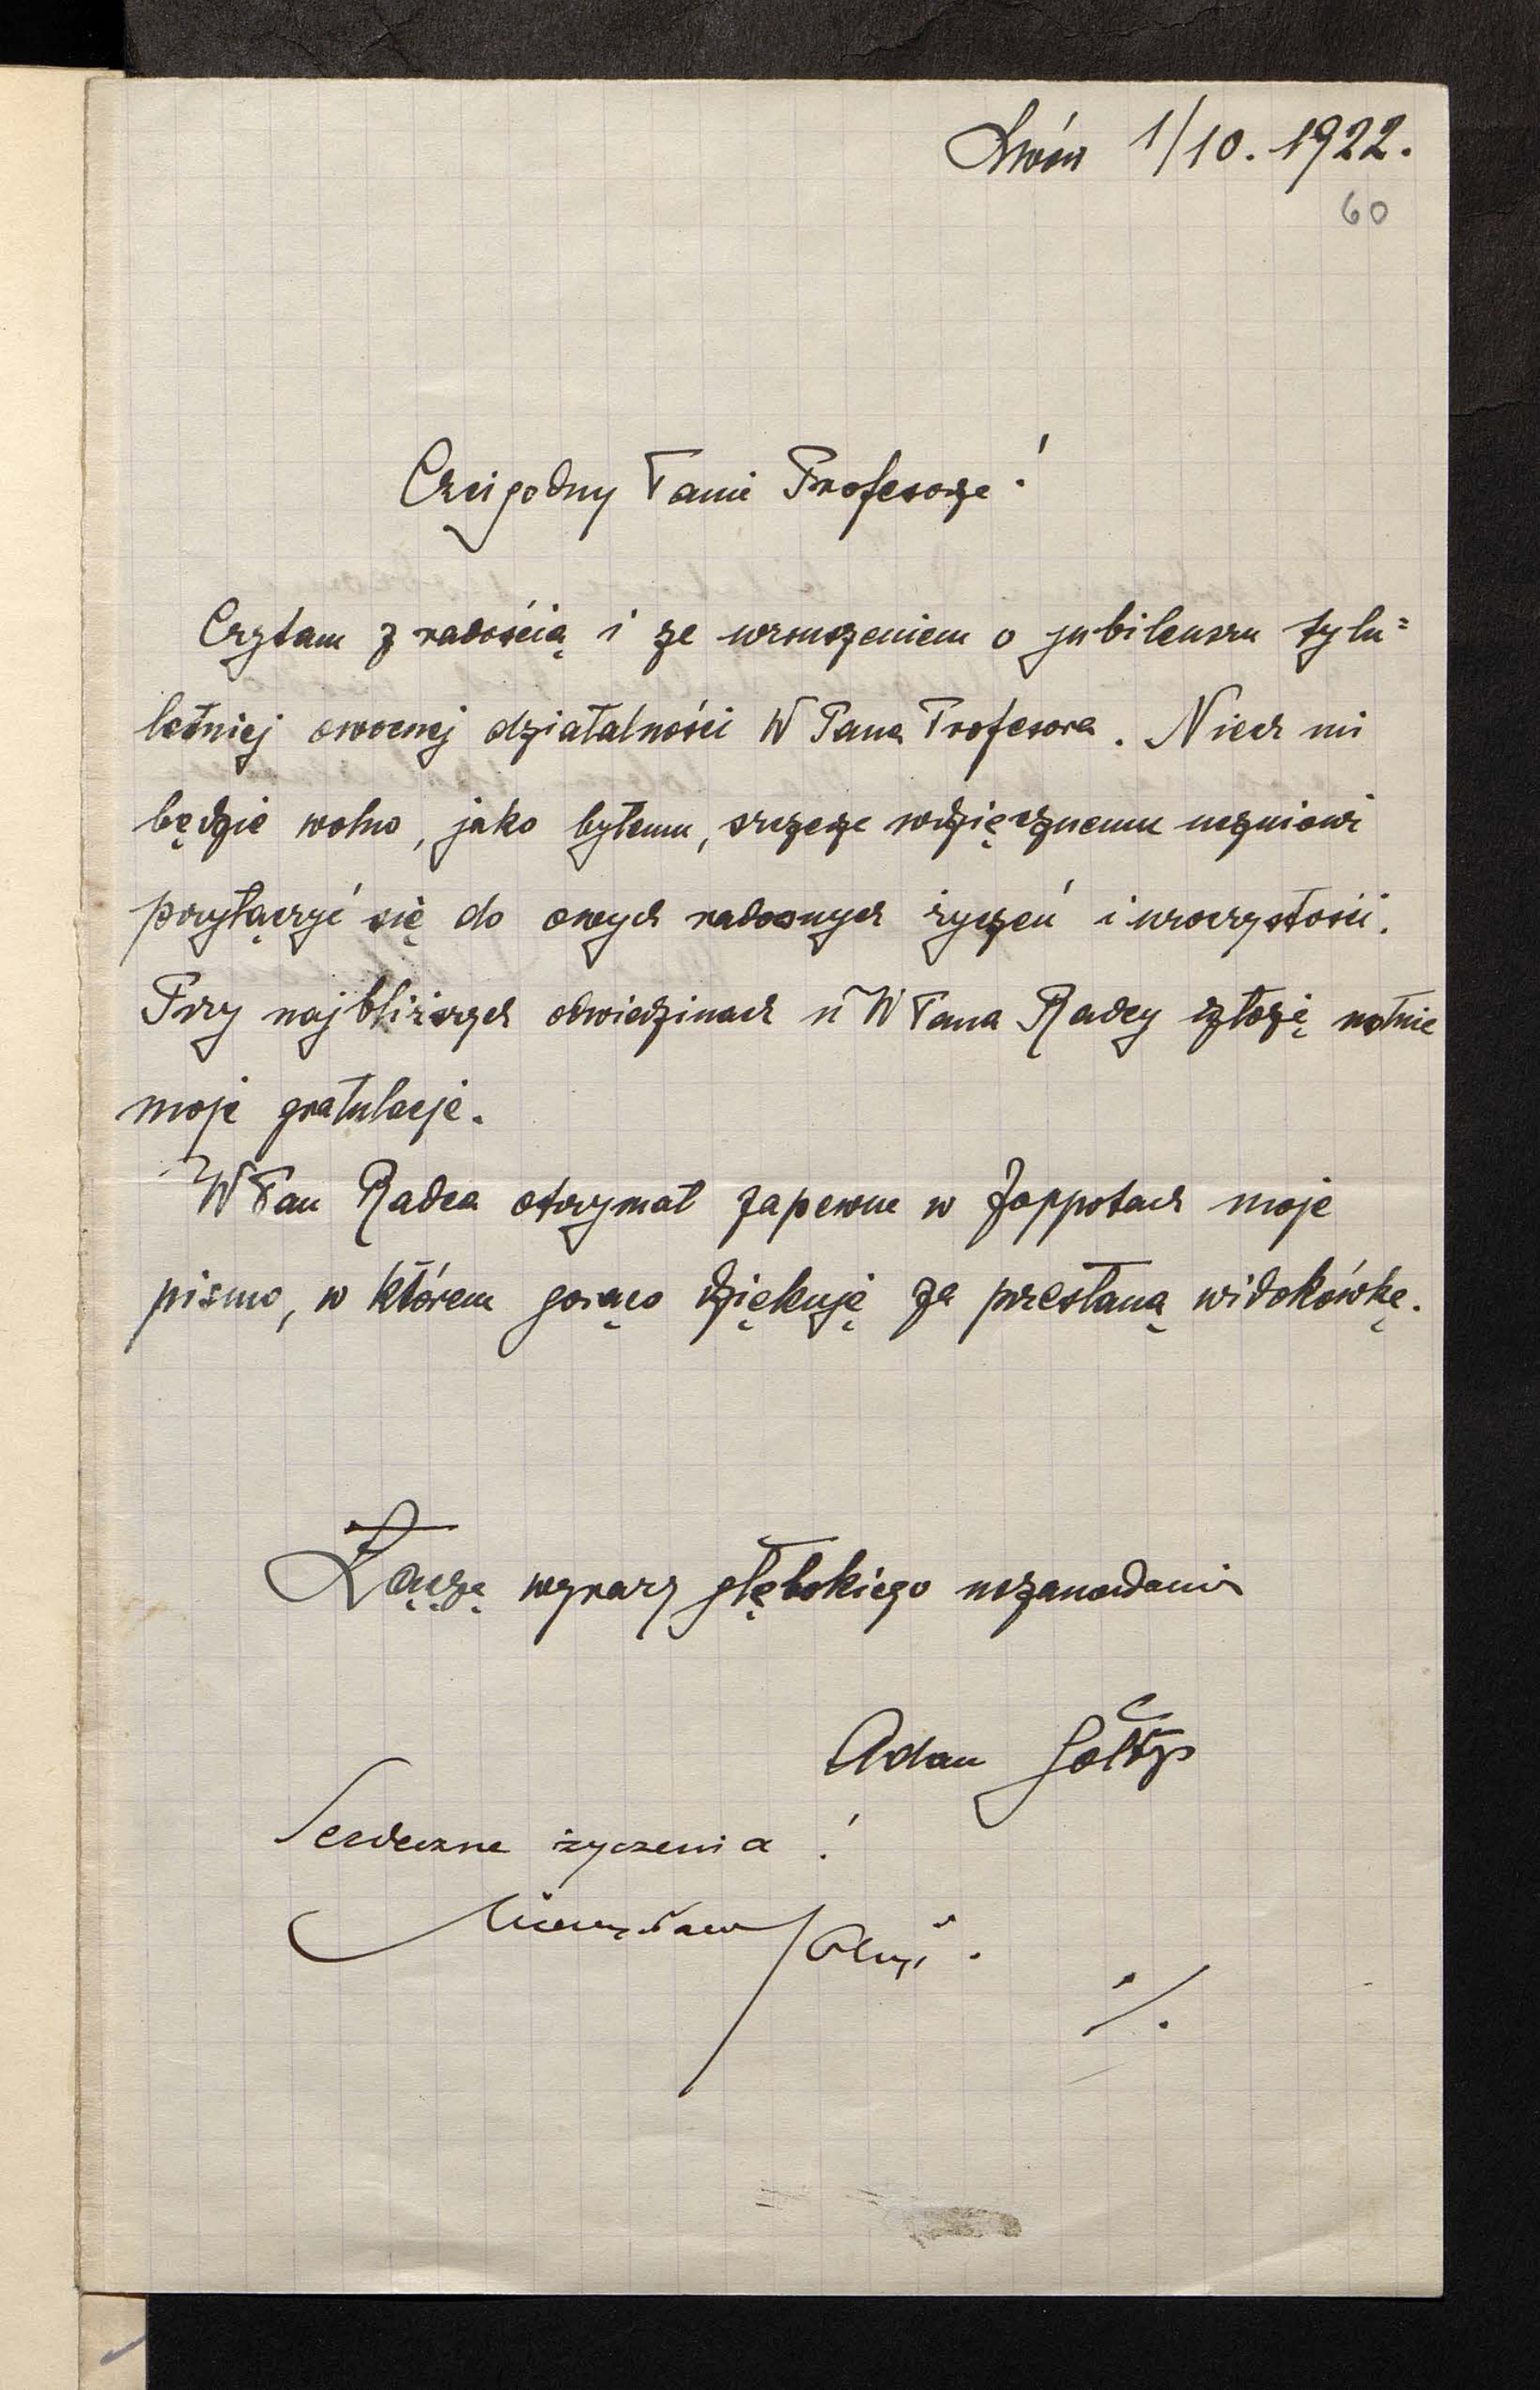 Lwów 1/10. 1922.
60
Czcigodny Panie Profesorze!
Czytam z radością i ze wzruszeniem o jubileuszu tylu=
letniej owocnej działalności W Pana Profesora. Niech mi
będzie wolno, jako byłemu, szczeze wdzięcznemu uczniowi
przyłączyć się do owych radosnych życzeń i uroczystości.
Przy najbliższych odwiedzinach u W Pana Radcy złożę ustnie
moje gratulacje.
W Pan Radca otrzymał zapewne w Zoppotach moje
pismo, w którem gorąco dziękuję za przesłaną widokówkę.
Łączę wyrazy głębokiego uszanowania
Adam Sołtys
Serdeczne życzenia!
Mieczysław Sołtys.
./.